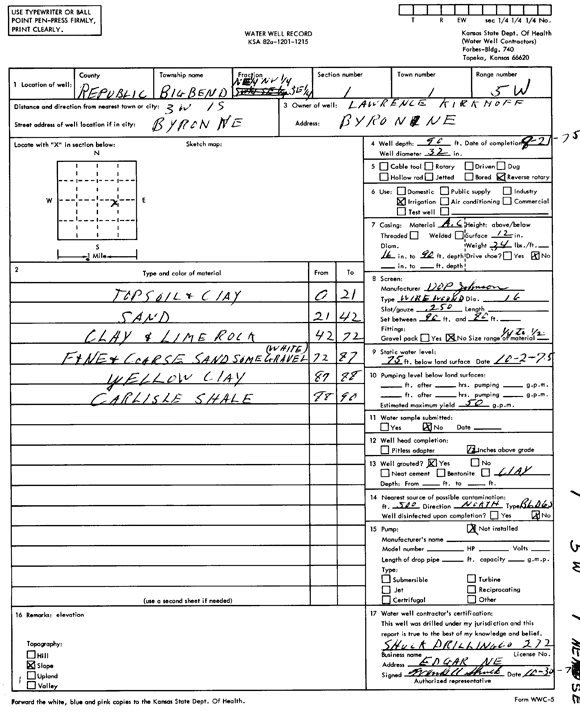 USE TYPEWRITER OR BALL
POINT PEN-PRESS FIRMLY,
PRINT CLEARLY.
WATER WELL RECORD
KSA 82a-1201-1215
T R EW sec 1/4 1/4 1/4 No.
Kansas State Dept. Of Health
(Water Well Contractors)
Forbes-Bldg. 740
Topeka, Kansas 66620
1 Location of well: County Township name Fraction Section number Town number Range number
REPUBLIC BIGBEND NE¼ NW¼ SE¼ 1 1 5 W
Distance and direction from nearest town or city: 3W 1S
3 Owner of well: LAWRENCE KIRKHOFF
Street address of well location if in city: BYRON NE
Address: BYRON NE
Locate with "X" in section below: Sketch map:
N
W X E
S
1 Mile
4 Well depth: 90 ft. Date of completion 8-21-75
Well diameter 32 in.
5 Cable tool Rotary Driven Dug
Hollow rod Jetted Bored X Reverse rotary
6 Use: Domestic Public supply Industry
X Irrigation Air conditioning Commercial
Test well
7 Casing: Material A.C. Height: above/below
Threaded Welded Surface 12 in.
Diam. Weight 34 lbs./ft.
16 in. to 90 ft. depth Drive shoe? Yes X No
in. to ft. depth
2 Type and color of material From To
TOPSOIL & CLAY 0 21
SAND 21 42
CLAY & LIME ROCK 42 72
FINE & COARSE SAND SOME (WHITE) GRAVEL 72 87
YELLOW CLAY 87 88
CARLISLE SHALE 88 90
(use a second sheet if needed)
8 Screen:
Manufacturer UOP Johnson
Type WIREWOUND Dia. 16
Slot/gauze .250 Length
Set between ft. and ft.
Fittings:
Gravel pack Yes X No Size range of material 1/4 to 1/2
9 Static water level:
75 ft. below land surface Date 10-2-75
10 Pumping level below land surfaces:
ft. after hrs. pumping g.p.m.
ft. after hrs. pumping g.p.m.
Estimated maximum yield 50 g.p.m.
11 Water sample submitted:
Yes X No Date
12 Well head completion:
Pitless adapter 12 Inches above grade
13 Well grouted? X Yes No
Neat cement Bentonite CLAY
Depth: From ft. to ft.
14 Nearest source of possible contamination:
ft. 500 Direction NORTH Type BLDGS
Well disinfected upon completion? Yes X No
15 Pump: X Not installed
Manufacturer's name
Model number HP Volts
Length of drop pipe ft. capacity g.m.p.
Type:
Submersible Turbine
Jet Reciprocating
Certrifugal Other
16 Remarks: elevation
Topography:
Hill
X Slope
Upland
Valley
17 Water well contractor's certification:
This well was drilled under my jurisdiction and this
report is true to the best of my knowledge and belief.
SHUCK DRILLING CO 272
Business name License No.
Address EDGAR NE
Signed Date 10-30-7
Authorized representative
Forward the white, blue and pink copies to the Kansas State Dept. Of Health.
Form WWC-5
1 5 W 1 NE SE